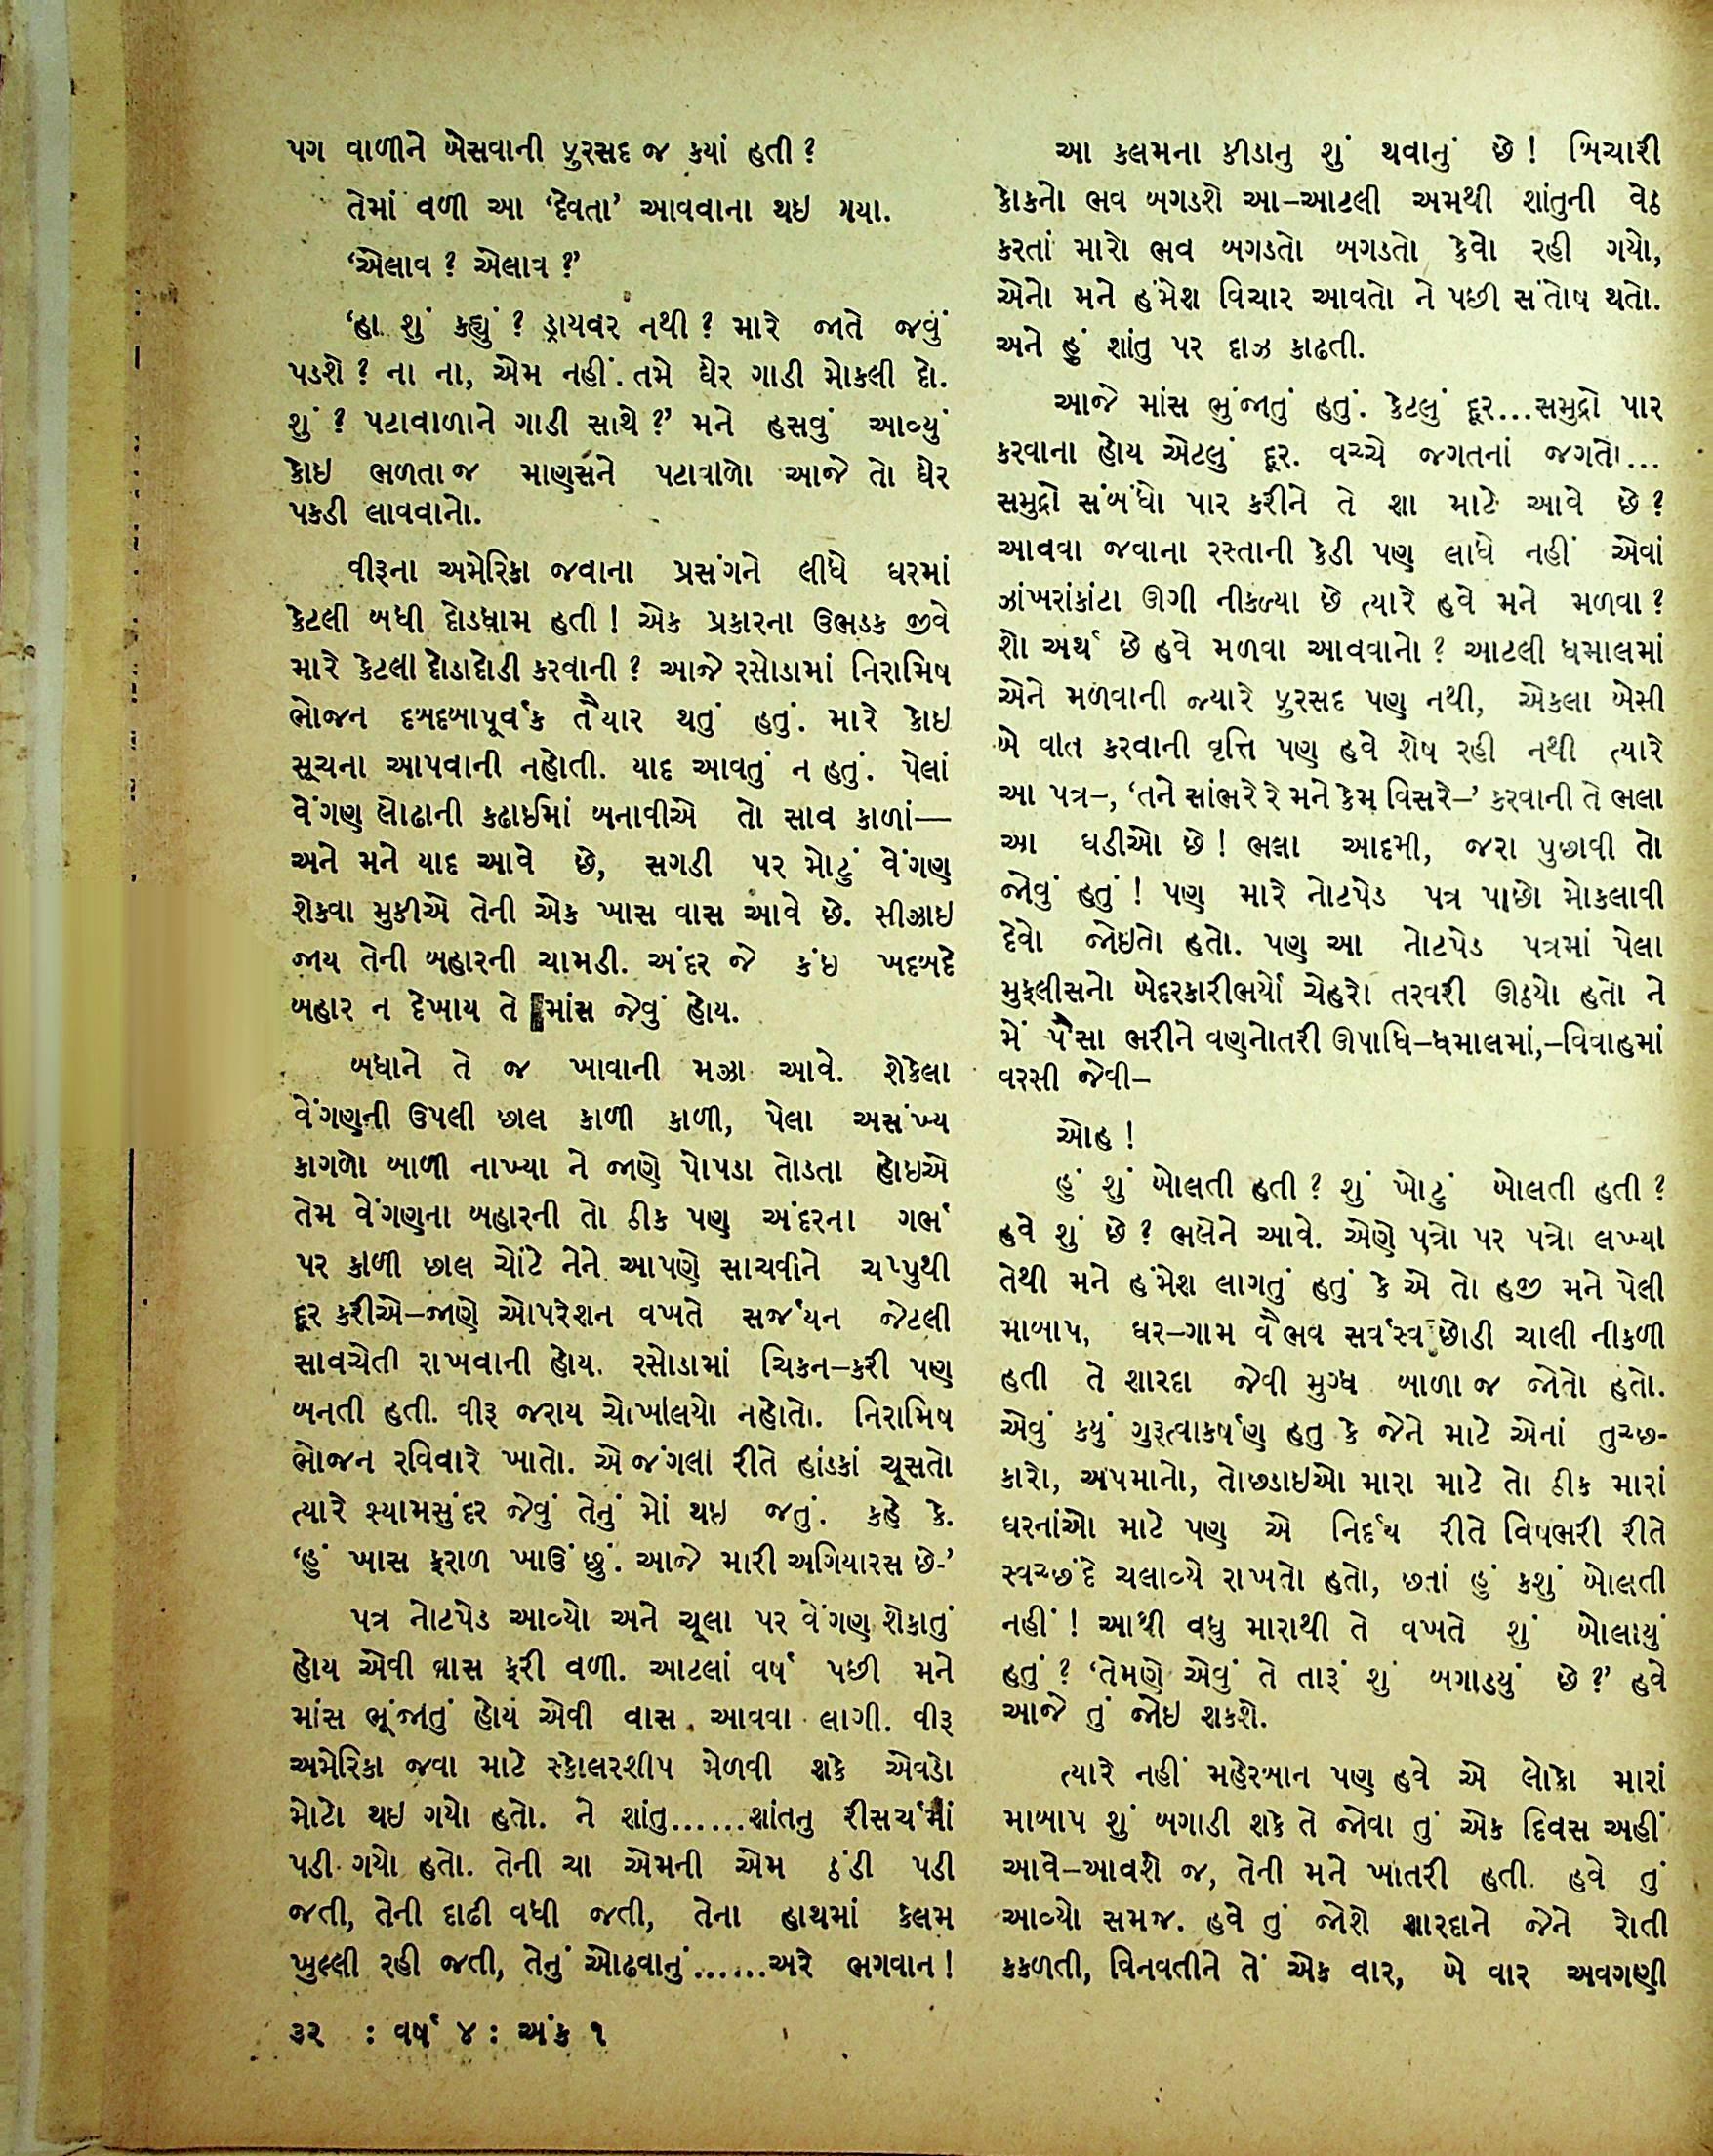 પગ વાળીને બેસવાની ફુરસદ જ કયાં હતી ?
તેમાં વળી આ ‘દેવતા’ આવવાના થઇ ગયા.
‘એલાવ ? એલાવ ?’
‘હા શું કહ્યું ? ડ્રાયવર નથી ? મારે જાતે જવું
પડશે ? ના ના, એમ નહીં. તમે ઘેર ગાડી મોકલી દો.
શું ? પટાવાળાને ગાડી સાથે ?’ મને હસવું આવ્યું
કોઇ ભળતા જ માણસને પટાવાળો આજે તો ઘેર
પકડી લાવવાનો.
વીરૂના અમેરિકા જવાના પ્રસંગને લીધે ઘરમાં
કેટલી બધી દોડધામ હતી ! એક પ્રકારના ઉભડક જીવે
મારે કેટલી દોડાદોડી કરવાની ? આજે રસોડામાં નિરામિષ
ભોજન દબદબાપૂર્વક તૈયાર થતું હતું. મારે કોઇ
સૂચના આપવાની નહોતી. યાદ આવતું ન હતું. પેલાં
વેંગણ લોઢાની કઢાઈમાં બનાવીએ તો સાવ કાળાં—
અને મને યાદ આવે છે, સગડી પર મોટું વેંગણ
શેકવા મુકીએ તેની એક ખાસ વાસ આવે છે. સીઝાઇ
જાય તેની બહારની ચામડી. અંદર જે કંઇ ખદબદે
બહાર ન દેખાય તે માંસ જેવું હોય.
બધાને તે જ ખાવાની મઝા આવે. શેકેલા
વેંગણની ઉપલી છાલ કાળી કાળી, પેલા અસંખ્ય
કાગળો બાળી નાખ્યા ને જાણે પોપડા તોડતા હોઇએ
તેમ વેંગણના બહારની તો ઠીક પણ અંદરના ગર્ભ
પર કાળી છાલ ચોંટે નેને આપણે સાચવીને ચપ્પુથી
દૂર કરીએ–જાણે ઓપરેશન વખતે સર્જયન જેટલી
સાવચેતી રાખવાની હોય. રસોડામાં ચિકન–કરી પણ
બનતી હતી. વીરૂ જરાય ચોખલિયો નહોતો. નિરામિષ
ભોજન રવિવારે ખાતો. એ જંગલી રીતે હાંડકાં ચૂસતો
ત્યારે શ્યામસુંદર જેવું તેનું મોં થઇ જતું. કહે કે.
‘હું ખાસ ફરાળ ખાઉં છું. આજે મારી અગિયારસ છે-’
પત્ર નોટપેડ આવ્યો અને ચૂલા પર વેંગણ શેકાતું
હોય એવી વાસ ફરી વળી. આટલાં વર્ષ પછી મને
માંસ ભૂંજાતું હોય એવી વાસ આવવા લાગી. વીરૂ
અમેરિકા જવા માટે સ્કોલરશીપ મેળવી શકે એવડો
મોટો થઇ ગયો હતો. ને શાંતુ......શાંતનુ રીસર્ચમાં
પડી ગયો હતો. તેની ચા એમની એમ ઠંડી પડી
જતી, તેની દાઢી વધી જતી, તેના હાથમાં કલમ
ખુલ્લી રહી જતી, તેનું ઓઢવાનું......અરે ભગવાન !
૩૨ : વર્ષ ૪ : અંક ૧
આ કલમના કીડાનુ શું થવાનું છે ! બિચારી
કોકનો ભવ બગડશે આ–આટલી અમથી શાંતુની વેઠ
કરતાં મારો ભવ બગડતો બગડતો કેવો રહી ગયો,
એનો મને હંમેશ વિચાર આવતો ને પછી સંતોષ થતો.
અને હું શાંતુ પર દાઝ કાઢતી.
આજે માંસ ભુંજાતું હતું. કેટલું દૂર...સમુદ્રો પાર
કરવાના હોય એટલું દૂર. વચ્ચે જગતનાં જગતો...
સમુદ્રો સંબંધો પાર કરીને તે શા માટે આવે છે ?
આવવા જવાના રસ્તાની કેડી પણ લાધે નહીં એવાં
ઝાંખરાંકાંટા ઊગી નીકળ્યા છે ત્યારે હવે મને મળવા ?
શો અર્થ છે હવે મળવા આવવાનો ? આટલી ધમાલમાં
એને મળવાની જ્યારે ફુરસદ પણ નથી, એકલા બેસી
બે વાત કરવાની વૃત્તિ પણ હવે શેષ રહી નથી ત્યારે
આ પત્ર–, ‘તને સાંભરે રે મને કેમ વિસરે–’ કરવાની તે ભલા
આ ઘડીઓ છે ! ભલા આદમી, જરા પુછાવી તો
જોવું હતું ! પણ મારે નોટપેડ પત્ર પાછો મોકલાવી
દેવો જોઇતો હતો. પણ આ નોટપેડ પત્રમાં પેલા
મુફલીસનો બેદરકારીભર્યો ચેહરો તરવરી ઊઠયો હતો ને
મેં પૈસા ભરીને વણનોતરી ઊપાધિ–ધમાલમાં,–વિવાહમાં
વરસી જેવી–
ઓહ !
હું શું બોલતી હતી ? શું ખોટું બોલતી હતી ?
હવે શું છે ? ભલેને આવે. એણે પત્રો પર પત્રો લખ્યા
તેથી મને હંમેશ લાગતું હતું કે એ તો હજી મને પેલી
માબાપ, ઘર–ગામ વૈભવ સર્વસ્વ છોડી ચાલી નીકળી
હતી તે શારદા જેવી મુગ્ધ બાળા જ જોતો હતો.
એવું કયું ગુરૂત્વાકર્ષણ હતુ કે જેને માટે એનાં તુચ્છ-
કારો, અપમાનો, તોછડાઇઓ મારા માટે તો ઠીક મારાં
ઘરનાંઓ માટે પણ એ નિર્દય રીતે વિષભરી રીતે
સ્વચ્છંદે ચલાવ્યે રાખતો હતો, છતાં હું કશું બોલતી
નહીં ! આથી વધુ મારાથી તે વખતે શું બોલાયું
હતું ? ‘તેમણે એવું તે તારૂં શું બગાડયું છે ?’ હવે
આજે તું જોઇ શકશે.
ત્યારે નહીં મહેરબાન પણ હવે એ લોકો મારાં
માબાપ શું બગાડી શકે તે જોવા તું એક દિવસ અહીં
આવે–આવશે જ, તેની મને ખાતરી હતી. હવે તું
આવ્યો સમજ. હવે તું જોશે શારદાને જેને રોતી
કકળતી, વિનવતીને તેં એક વાર, બે વાર અવગણી